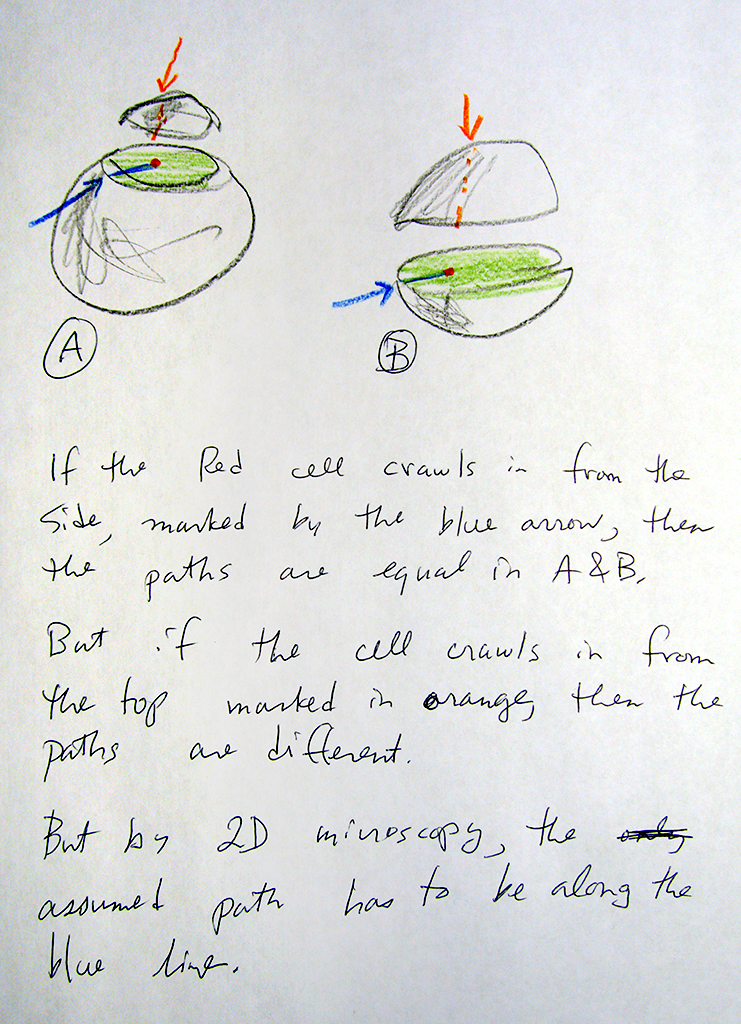 A
B
If the Red cell crawls in from the
side, marked by the blue arrow, then
the paths are equal in A & B.
But if the cell crawls in from
the top marked in orange, then the
paths are different.
But by 2D microscopy, the only
assumed path has to be along the
blue line.